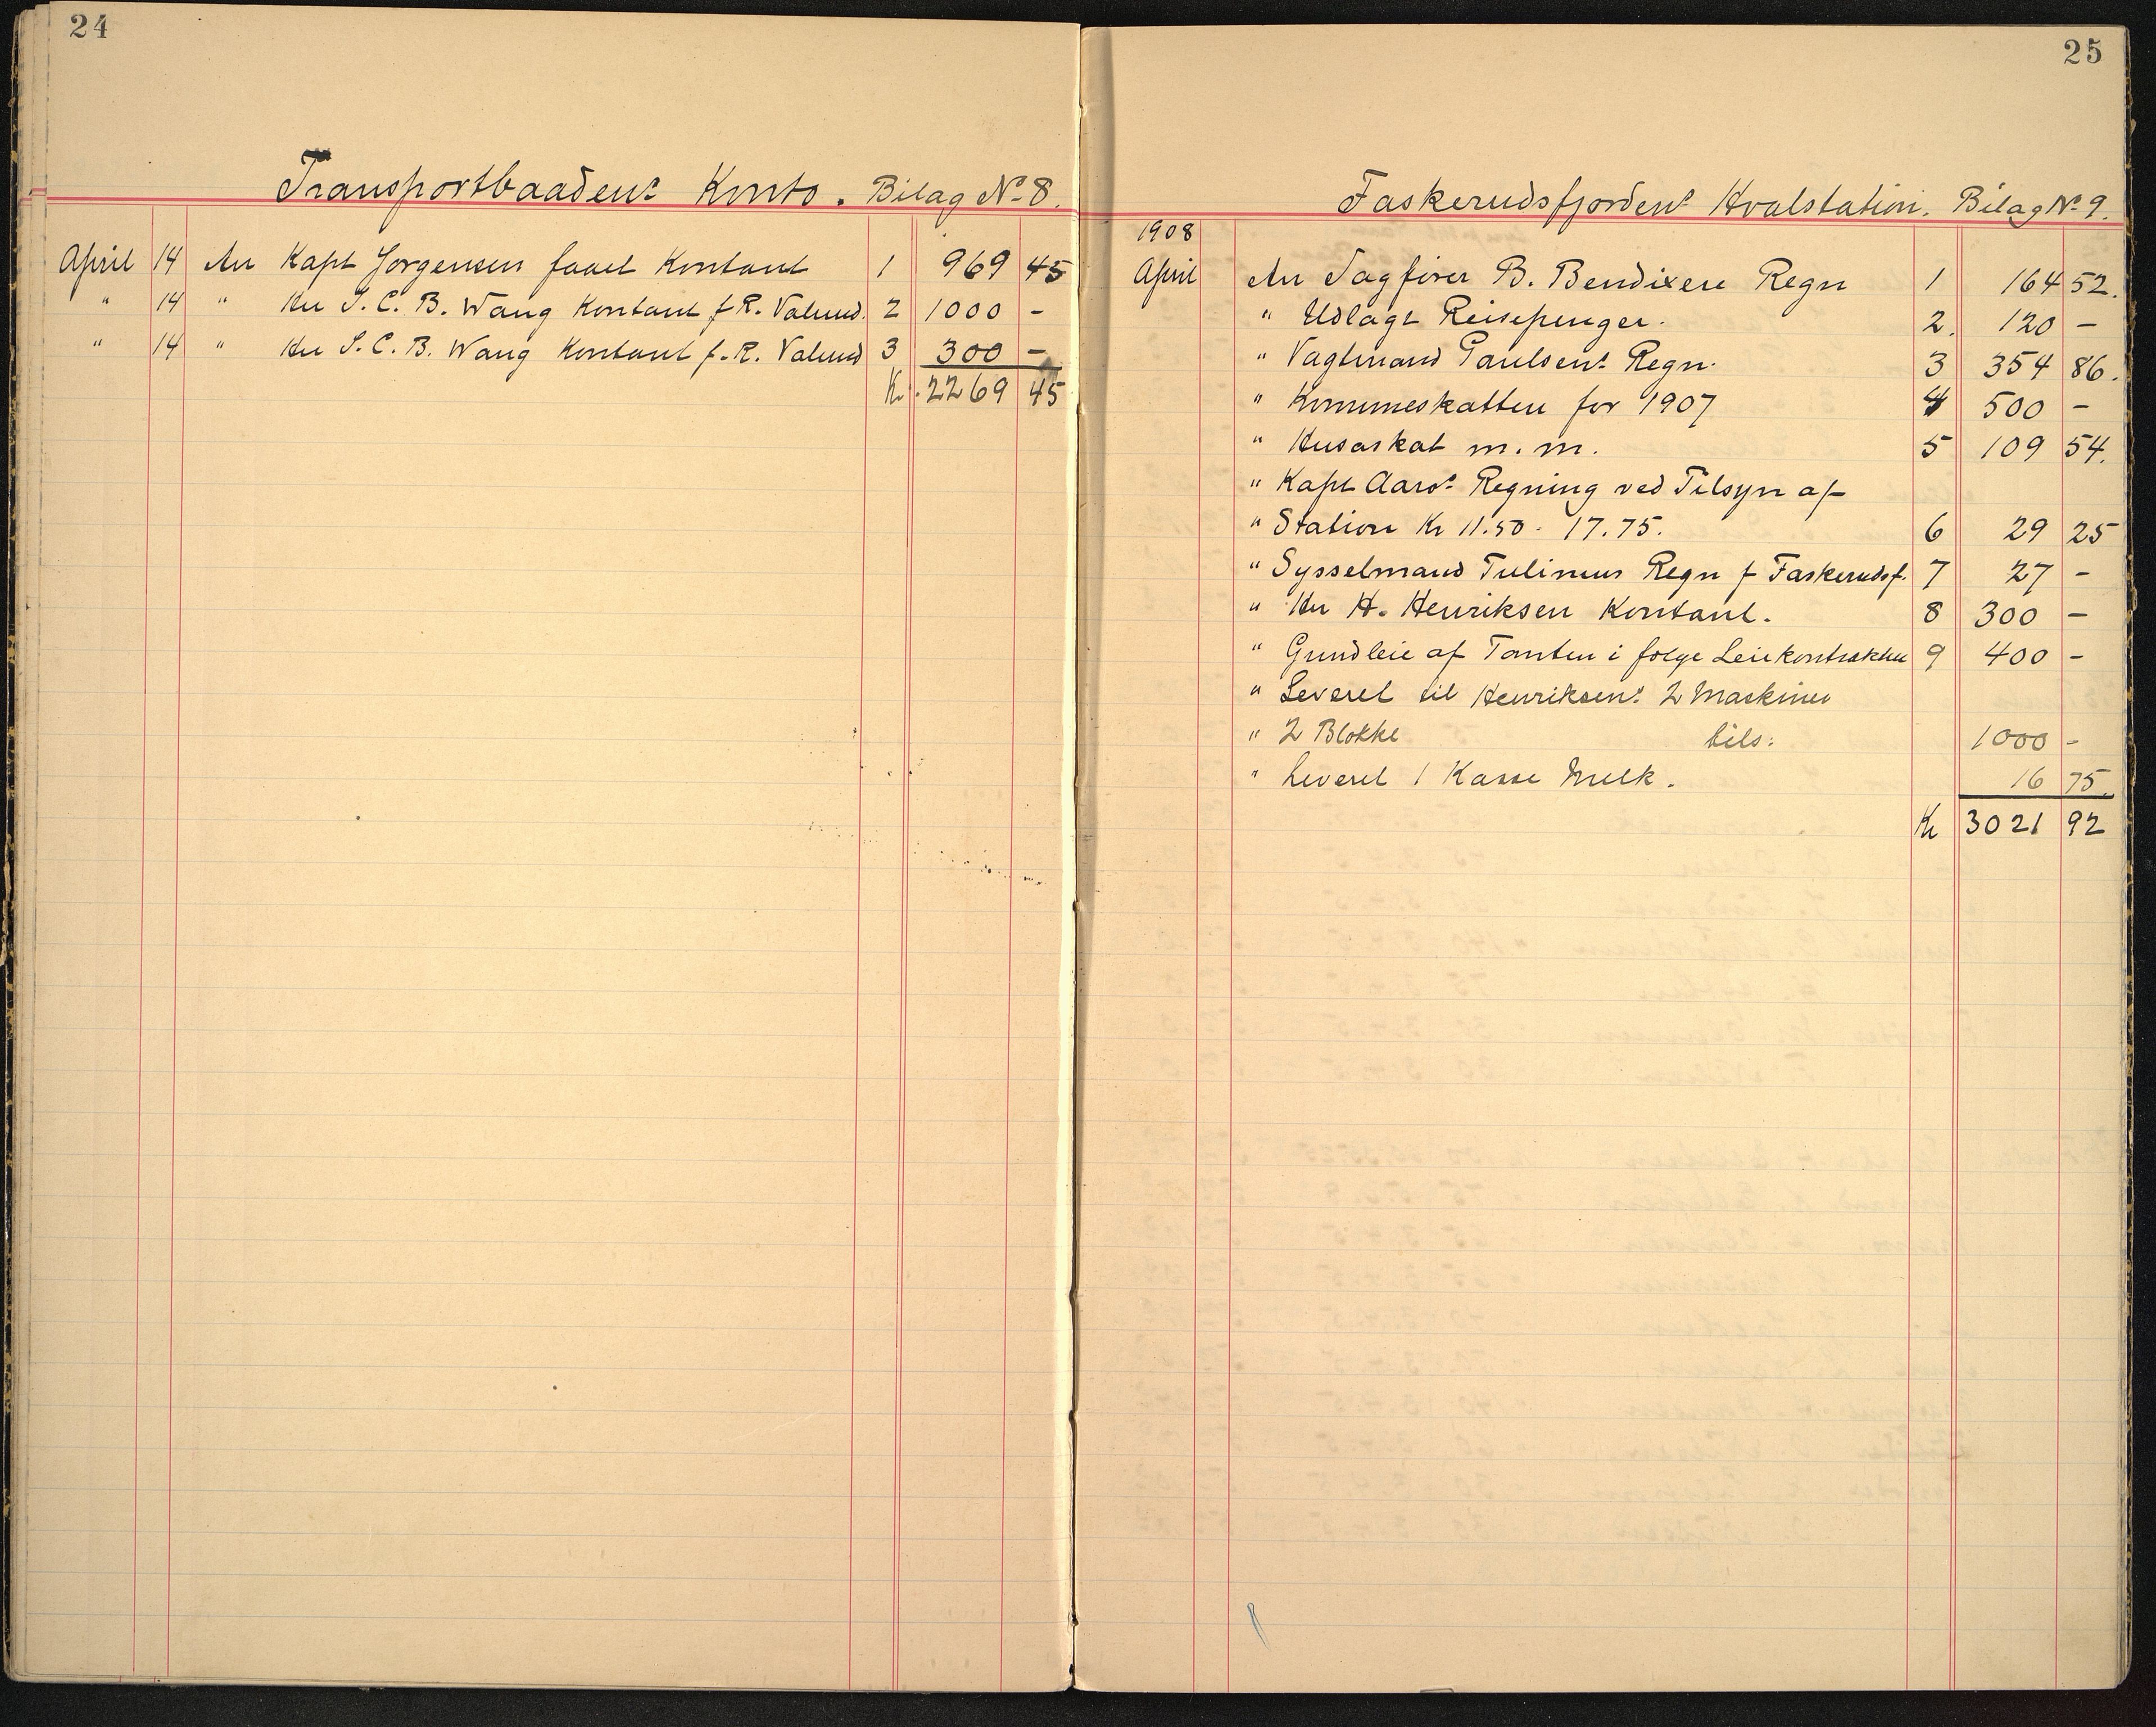 24
Transportbaadens Konto. Bilag No 8.
April 14 An Kapt Jorgensen faaet Kontant 1 969 45
" 14 " Hr I. C. B. Wang Kontant f R. Valund. 2 1000 -
" 14 " Hr I. C. B. Wang Kontant f. R. Valund 3 300 -
Kr. 2269 45
25
Faskerudsfjordens Hvalstation. Bilag No 9.
1908
April An Sagfører B. Bendixen Regn 1 164 52.
" Udlagt Reisepenger. 2. 120 -
" Vagtmand Paulsens Regn. 3 354 86.
" Kommeskatten for 1907 4 500 -
" Husaskat m. m. 5 109 54.
" Kapt Aaros Regning ved Tilsyn af
" Station Kr 11.50 - 17.75. 6 29 25
" Sysselmand Tulinius Regn f Faskerudsf. 7 27 -
" Hr H. Henriksen Kontant. 8 300 -
" Grundleie af Tomten i følge Leiekontrakten 9 400 -
" Leveret til Henriksens 2 Maskiner
" 2 Blokke tils: 1000 -
" Leveret 1 Kasse Melk. 16 75.
Kr 3021 92